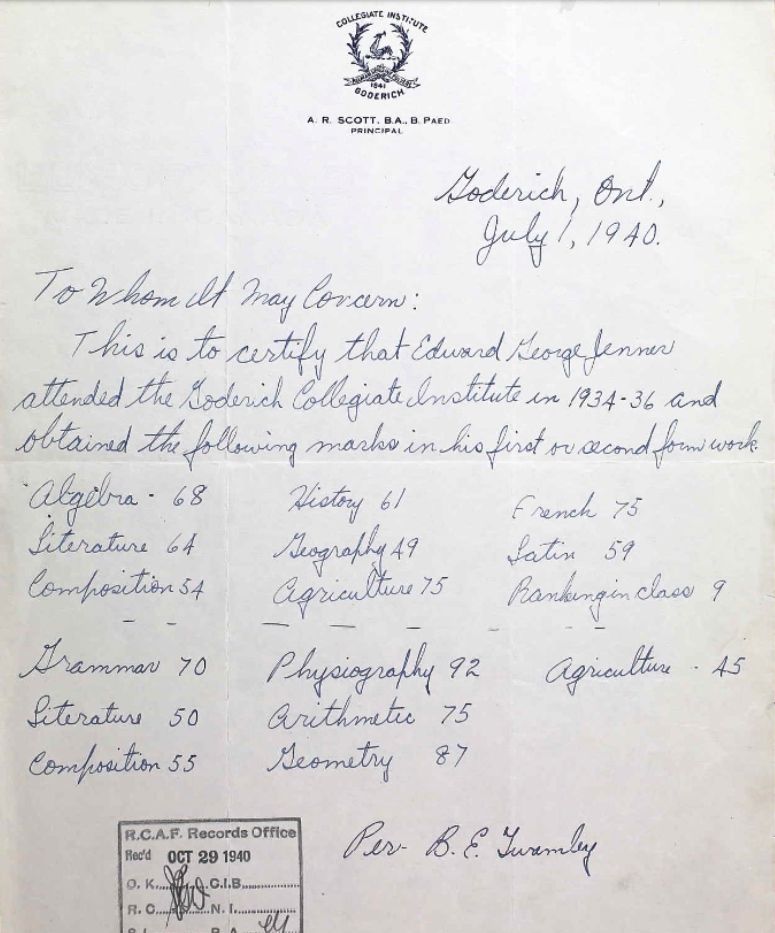 COLLEGIATE INSTITUTE
1841
GODERICH
A. R. SCOTT, B.A., B. PAED
PRINCIPAL
Goderich, Ont.,
July 1, 1940.
To Whom It May Concern:
This is to certify that Edward George Jenner
attended the Goderich Collegiate Institute in 1934-36 and
obtained the following marks in his first or second form work.
Algebra - 68 History 61 French 75
Literature 64 Geography 49 Latin 59
Composition 54 Agriculture 75 Ranking in class 9
Grammar 70 Physiography 92 Agriculture - 45
Literature 50 Arithmetic 75
Composition 55 Geometry 87
Per- B. E. Twamley
R.C.A.F. Records Office
Rec'd OCT 29 1940
O. K. C.I.B.
R. C. N. I.